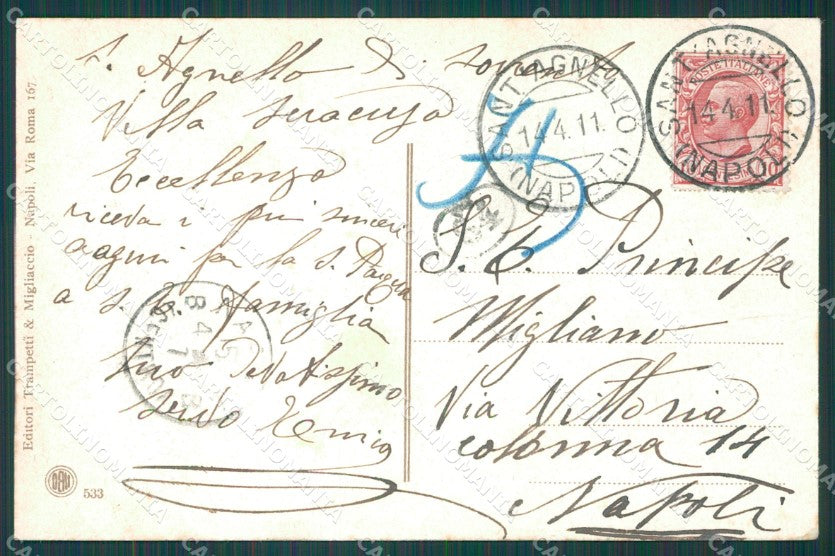 S. Agnello di Sorrento
Villa Siracusa
Eccellenza
riceva i più sinceri
auguri per la S. Pasqua
a S. E. famiglia
Suo Devotissimo
Servo
S. E. Principe
Migliano
Via Vittoria
colonna 14
Napoli
SANT'AGNELLO
14.4.11.
(NAPOLI)
SANT'AGNELLO
14.4.11.
(NAPOLI)
POSTE ITALIANE
Editori Trampetti & Migliaccio - Napoli, Via Roma 167
533
CARTOLINOMANIA